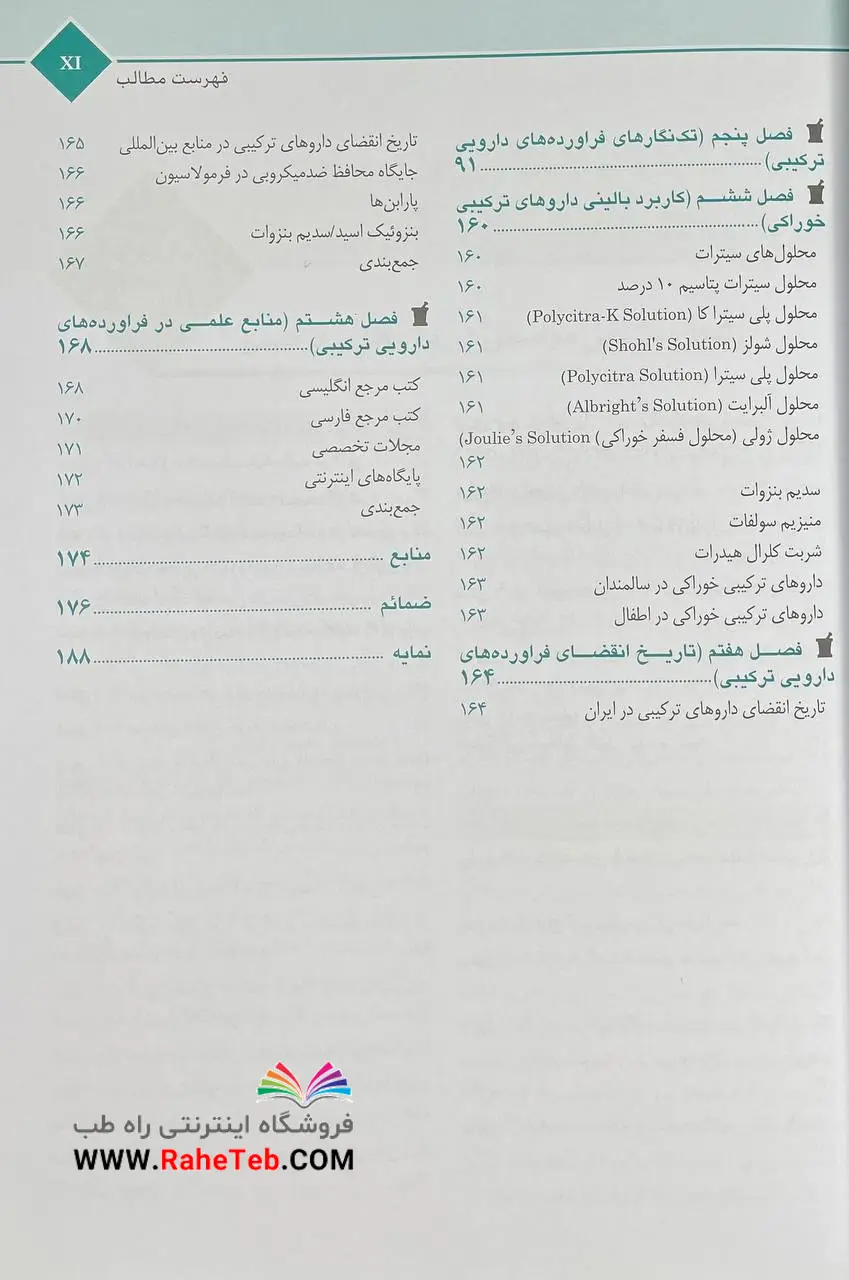 XI
فهرست مطالب
فصل پنجم (تک‌نگارهای فراورده‌های دارویی
ترکیبی)........................................ ۹۱
فصل ششم (کاربرد بالینی داروهای ترکیبی
خوراکی)........................................ ۱۶۰
محلول‌های سیترات ۱۶۰
محلول سیترات پتاسیم ۱۰ درصد ۱۶۰
محلول پلی سیترا کا (Polycitra-K Solution) ۱۶۱
محلول شولز (Shohl's Solution) ۱۶۱
محلول پلی سیترا (Polycitra Solution) ۱۶۱
محلول آلبرایت (Albright’s Solution) ۱۶۱
محلول ژولی (محلول فسفر خوراکی) (Joulie’s Solution
۱۶۲
سدیم بنزوات ۱۶۲
منیزیم سولفات ۱۶۲
شربت کلرال هیدرات ۱۶۲
داروهای ترکیبی خوراکی در سالمندان ۱۶۳
داروهای ترکیبی خوراکی در اطفال ۱۶۳
فصل هفتم (تاریخ انقضای فراورده‌های
دارویی ترکیبی)........................................ ۱۶۴
تاریخ انقضای داروهای ترکیبی در ایران ۱۶۴
تاریخ انقضای داروهای ترکیبی در منابع بین‌المللی ۱۶۵
جایگاه محافظ ضدمیکروبی در فرمولاسیون ۱۶۶
پارابن‌ها ۱۶۶
بنزوئیک اسید/سدیم بنزوات ۱۶۶
جمع‌بندی ۱۶۷
فصل هشتم (منابع علمی در فراورده‌های
دارویی ترکیبی)........................................ ۱۶۸
کتب مرجع انگلیسی ۱۶۸
کتب مرجع فارسی ۱۷۰
مجلات تخصصی ۱۷۱
پایگاه‌های اینترنتی ۱۷۲
جمع‌بندی ۱۷۳
منابع ........................................ ۱۷۴
ضمائم ........................................ ۱۷۶
نمایه ........................................ ۱۸۸
فروشگاه اینترنتی راه طب
WWW.RaheTeb.COM